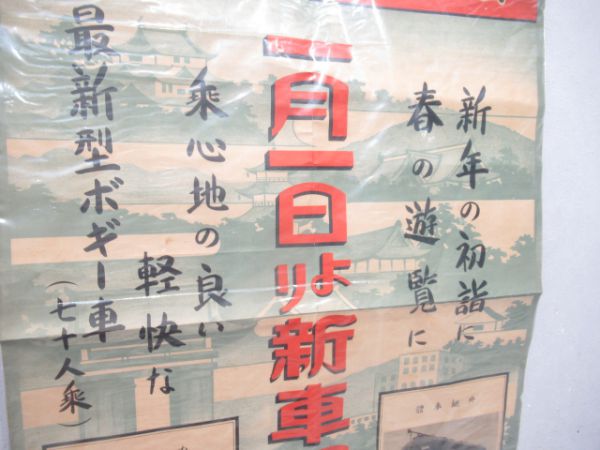 新年の初詣に
春の遊覧に
一月一日より新車
乗心地の良い
軽快な
最新型ボギー車
（七十人乗）